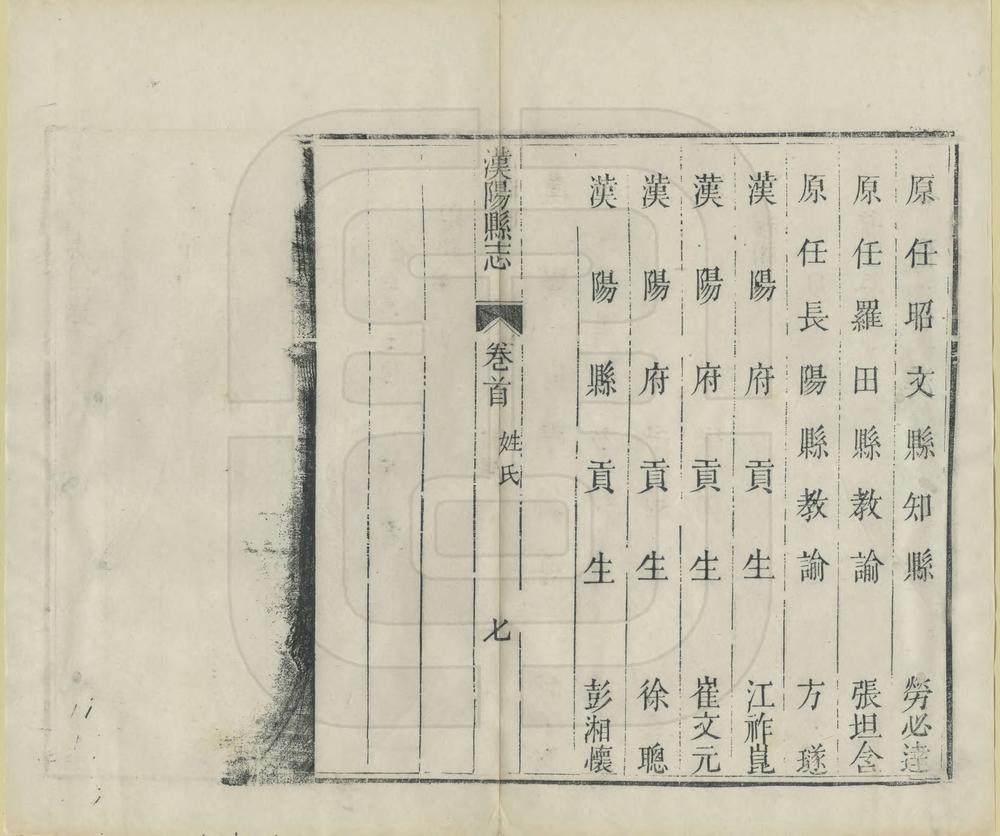 原任昭文縣知縣 勞必達
原任羅田縣教諭 張坦含
原任長陽縣教諭 方璲
漢陽府貢生 江祚崑
漢陽府貢生 崔文元
漢陽府貢生 徐聰
漢陽縣貢生 彭湘懷
漢陽縣志 卷首 姓氏 七